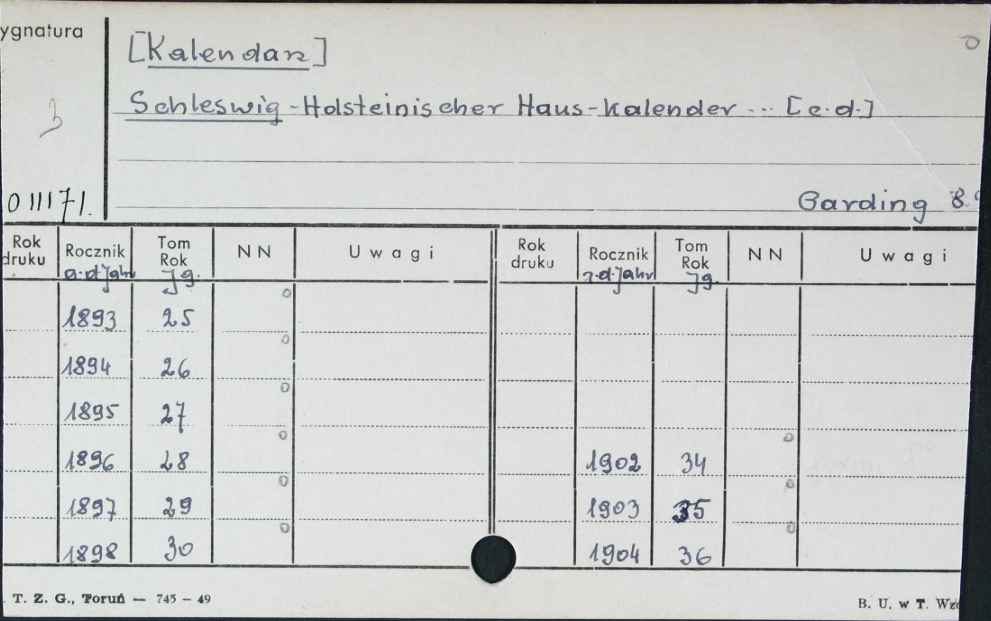 ygnatura
[Kalendarz]
Schleswig-Holsteinischer Haus-Kalender ... [e.d.]
3
0 III 71.
Garding 8.
Rok druku Rocznik a.d Jahr Tom Rok Jg. NN Uwagi Rok druku Rocznik a.d. Jahr Tom Rok Jg. NN Uwagi
1893 25
1894 26
1895 27
1896 28 1902 34
1897 29 1903 35
1898 30 1904 36
T. Z. G., Toruń — 745 — 49 B. U. w T.